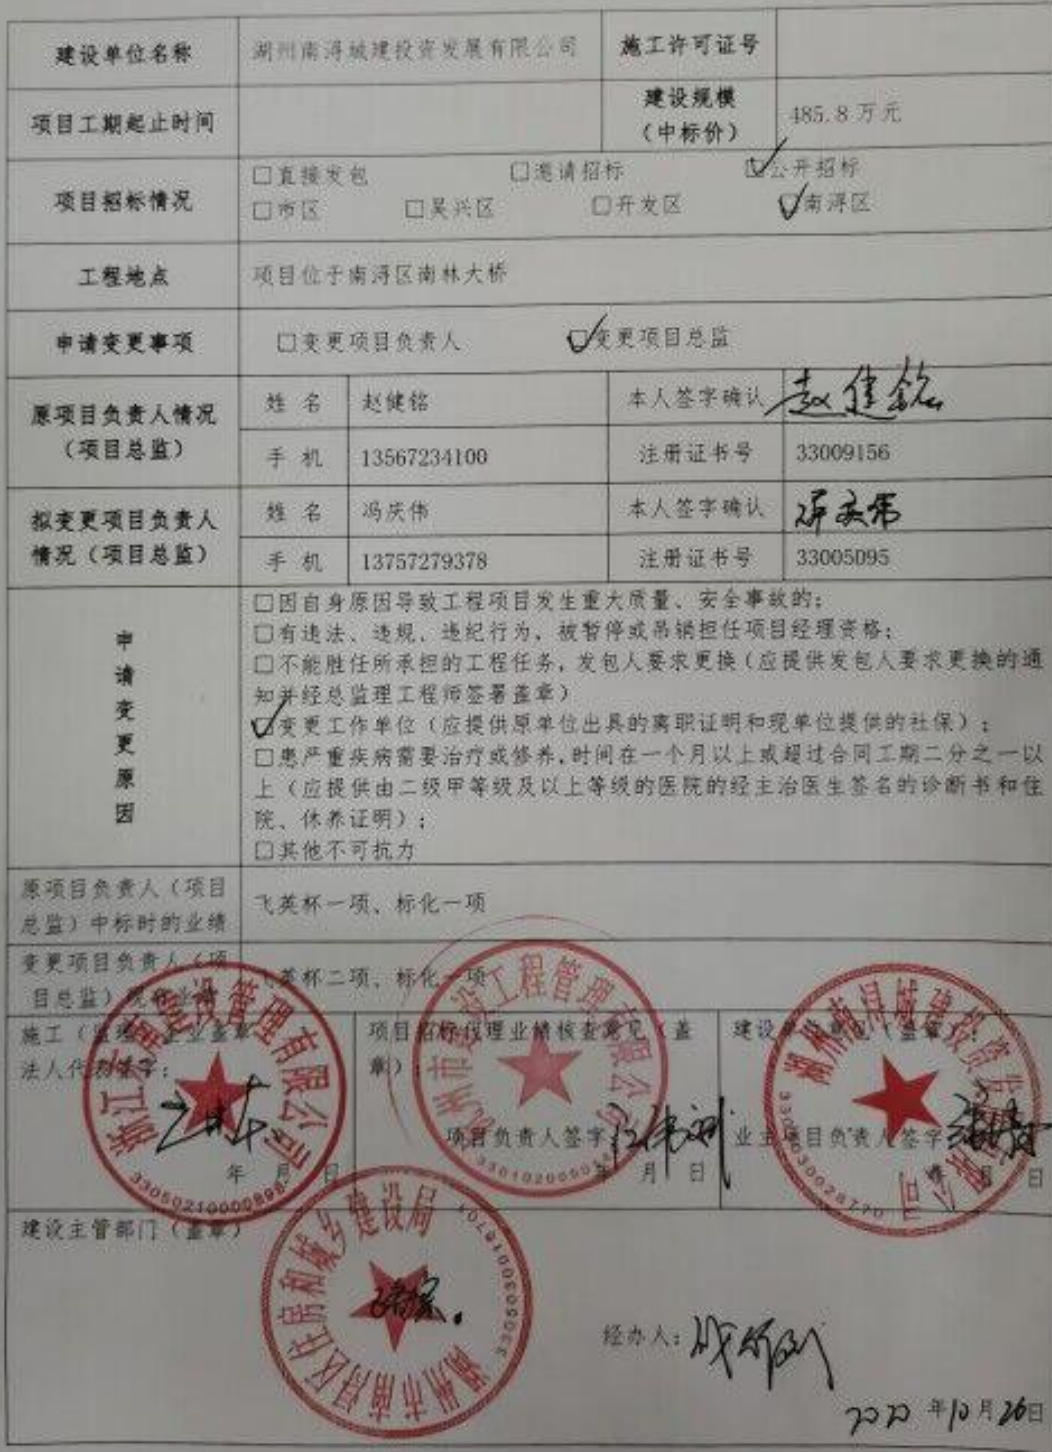 建设单位名称 湖州南浔城建投资发展有限公司 施工许可证号
项目工期起止时间 建设规模（中标价） 485.8万元
项目招标情况 □直接发包 □邀请招标 ☑公开招标
□市区 □吴兴区 □开发区 ☑南浔区
工程地点 项目位于南浔区南林大桥
申请变更事项 □变更项目负责人 ☑变更项目总监
原项目负责人情况（项目总监） 姓名 赵健铭 本人签字确认 赵健铭
手机 13567234100 注册证书号 33009156
拟变更项目负责人情况（项目总监） 姓名 冯庆伟 本人签字确认 冯庆伟
手机 13757279378 注册证书号 33005095
申请变更原因
□因自身原因导致工程项目发生重大质量、安全事故的；
□有违法、违规、违纪行为，被暂停或吊销担任项目经理资格；
□不能胜任所承担的工程任务，发包人要求更换（应提供发包人要求更换的通
知并经总监理工程师签署盖章）
☑变更工作单位（应提供原单位出具的离职证明和现单位提供的社保）；
□患严重疾病需要治疗或修养，时间在一个月以上或超过合同工期二分之一以
上（应提供由二级甲等级及以上等级的医院的经主治医生签名的诊断书和住
院、休养证明）；
□其他不可抗力
原项目负责人（项目
总监）中标时的业绩 飞英杯一项、标化一项
变更项目负责人（项
目总监） 飞英杯二项、标化一项
施工（监理）企业盖章 项目招标代理业绩核查意见（盖章） 建设单位 （盖章）：
法人代表签字：
项目负责人签字 业主项目负责人签字
年 月 日 年 月 日 年 月 日
建设管理有限公司
3305021000089
工程管理有限公司
湖州南浔城建投资发展有限公司
建设主管部门（盖章）
湖州市南浔区住房和城乡建设局
经办人：
2020 年10月26日